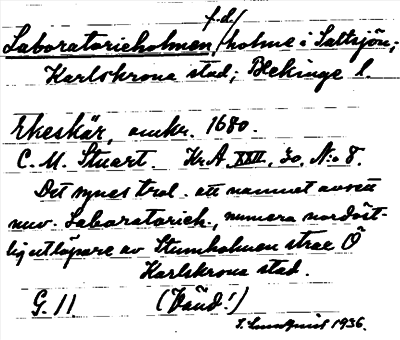 f.d./
Laboratorieholmen, holme i Saltsjön;
Karlskrona stad; Blekinge l.
Ekeskär, omkr. 1680.
C. M. Stuart. Kr.A. XXII, 30, N:o 8.
Det synes trol. att namnet avsett
nuv. Laboratorieh., numera nordöst-
lig utlöpare av Stumholmen strax Ö
Karlskrona stad.
G. 11 (Vänd!)
1936.